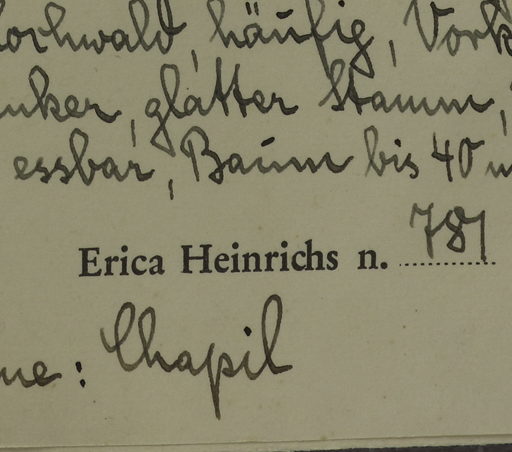 Hochwald, häufig, Vork
nker, glatter Stamm,
essbar, Baum bis 40 m
Erica Heinrichs n. 781
me: Chapil